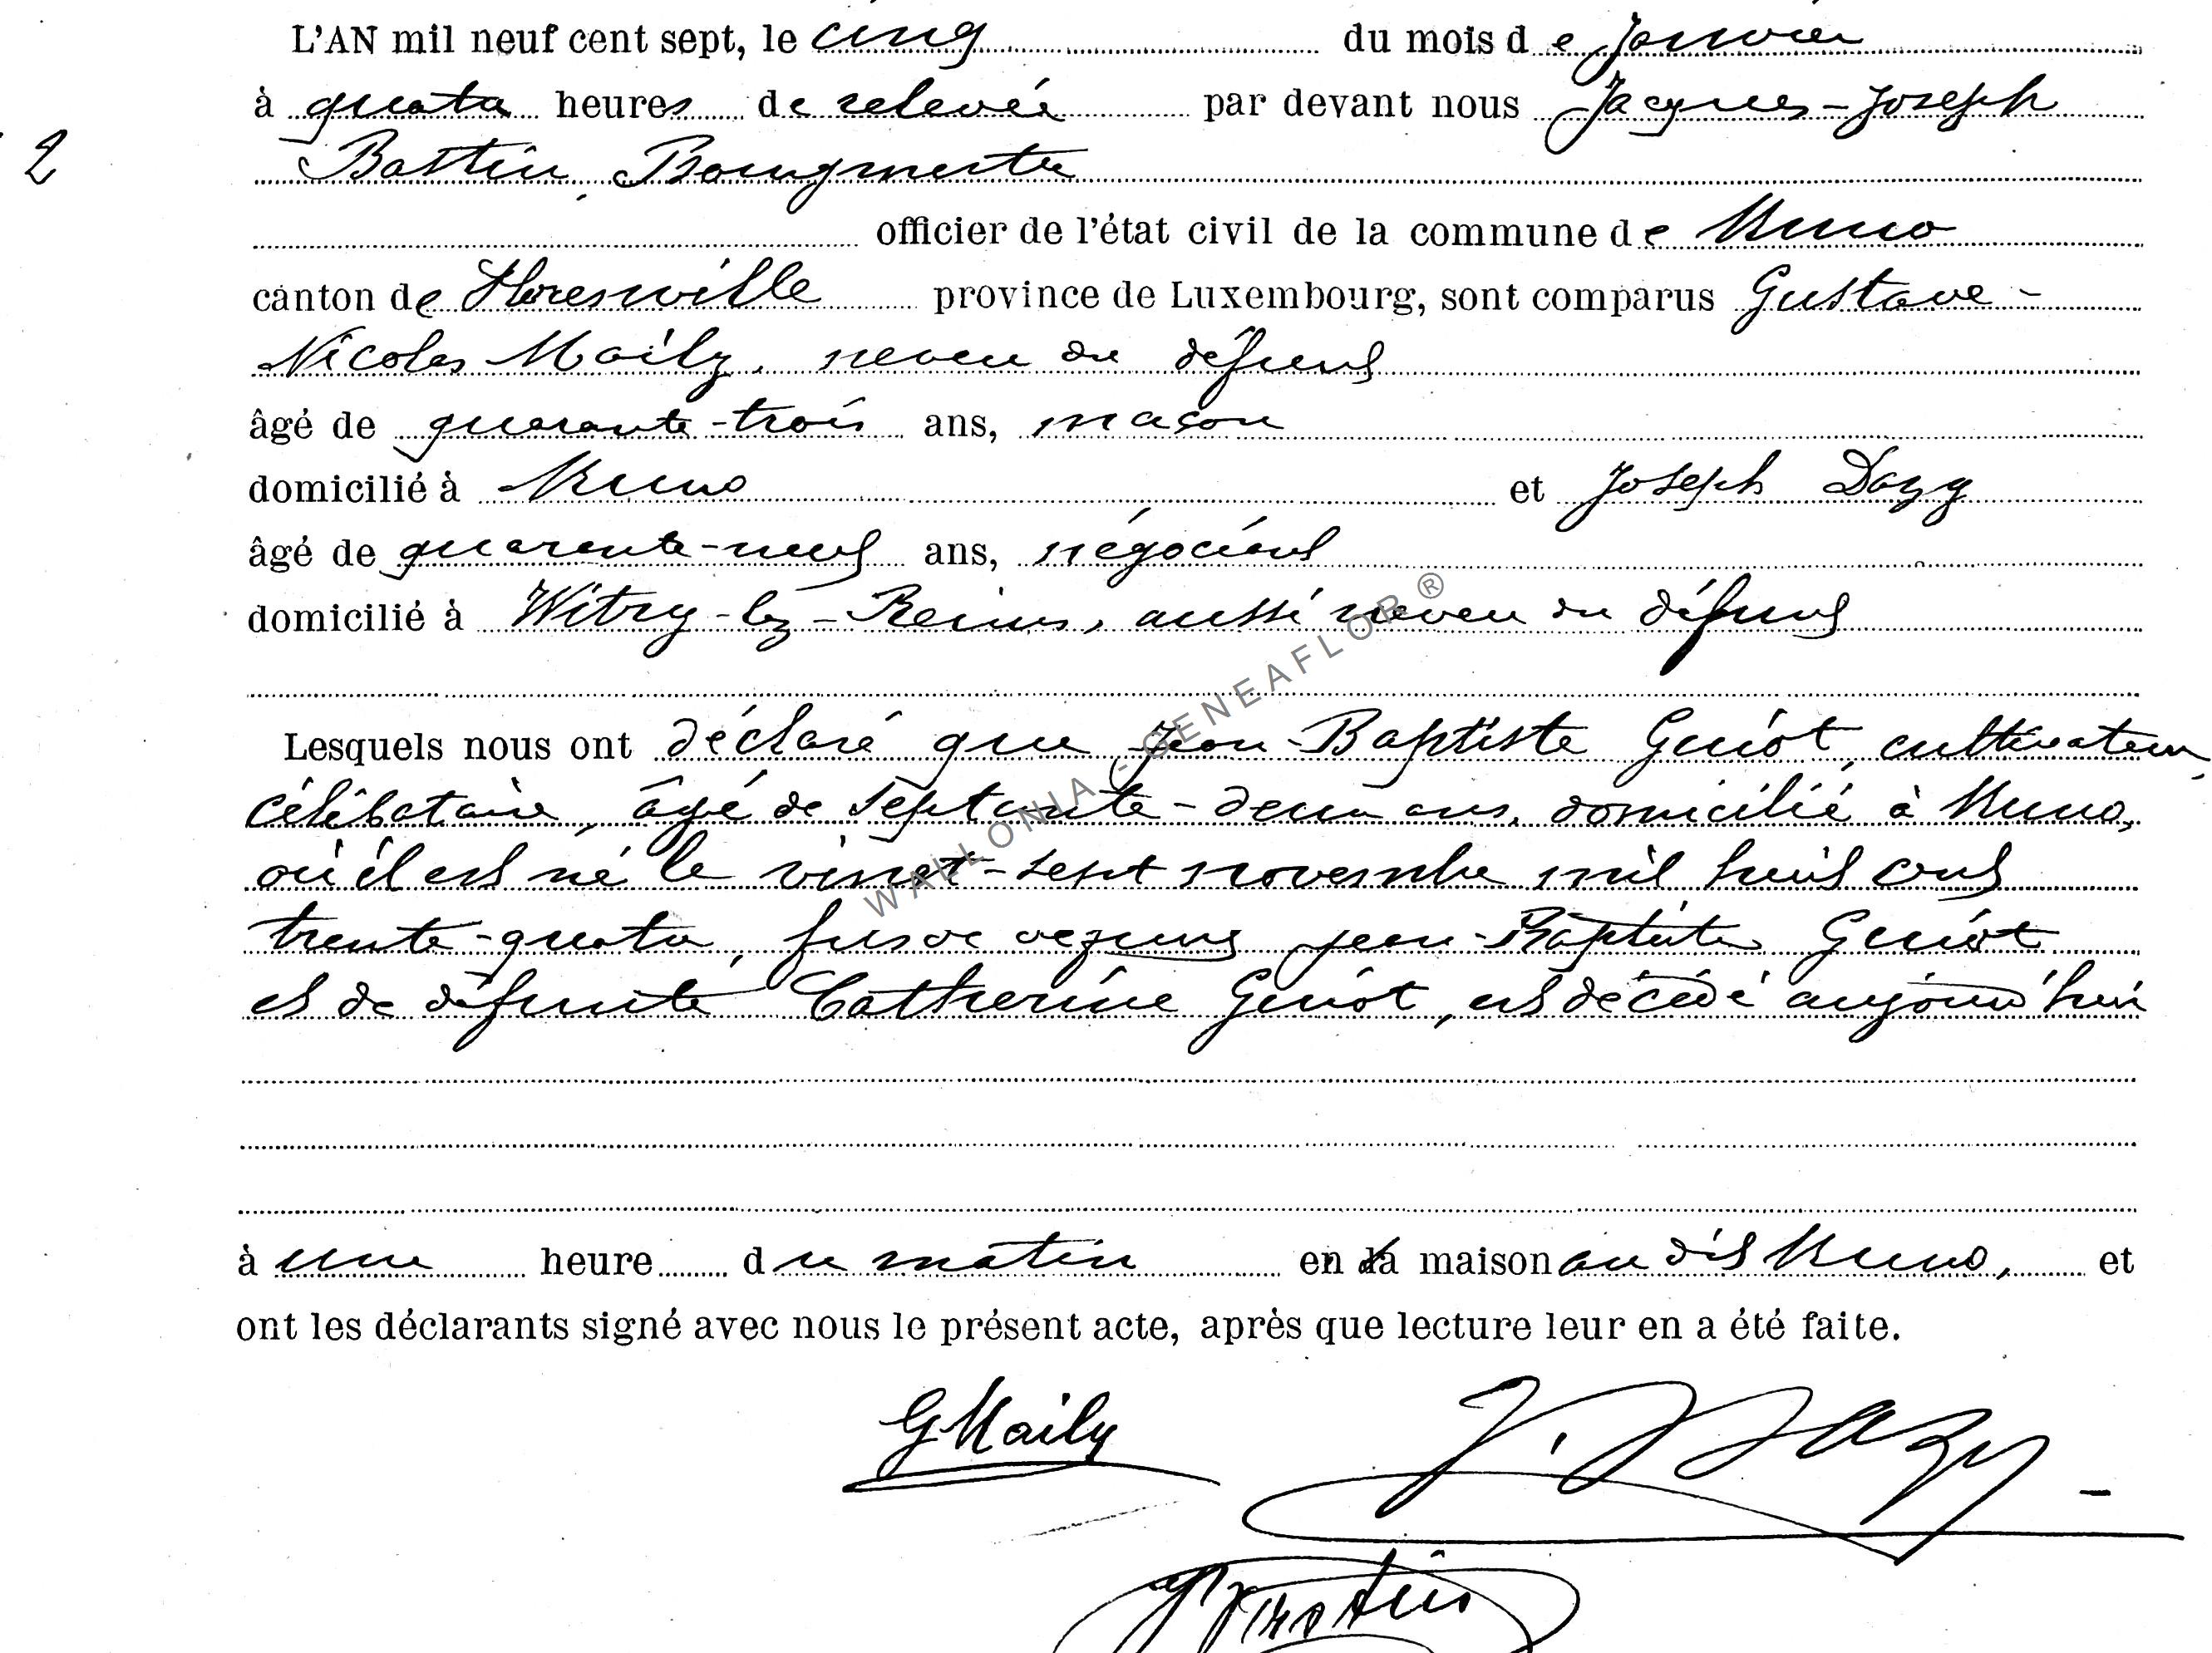 L'AN mil neuf cent sept, le cinq du mois de Janvier
à quatre heures de relevée par devant nous Jacques-Joseph
2
Bastin, Bourgmestre
officier de l'état civil de la commune de Muno
canton de Florenville province de Luxembourg, sont comparus Gustave-
Nicolas Maily, neveu du défunt
âgé de quarante-trois ans, maçon
domicilié à Muno et Joseph Dazy
âgé de quarante-neuf ans, négociant
domicilié à Witry-lez-Reims, aussi neveu du défunt
WALLONIA - GENEAFLOR ®
Lesquels nous ont déclaré que Jean-Baptiste Guiot, cultivateur,
célibataire, âgé de septante-deux ans, domicilié à Muno,
où il est né le vingt-sept novembre mil huit cent
trente-quatre, fils de défunt Jean-Baptiste Guiot
et de défunte Catherine Guiot, est décédé aujourd'hui
à une heure du matin en sa maison au dit Muno, et
ont les déclarants signé avec nous le présent acte, après que lecture leur en a été faite.
GMaily J. Dazy
JJBastin